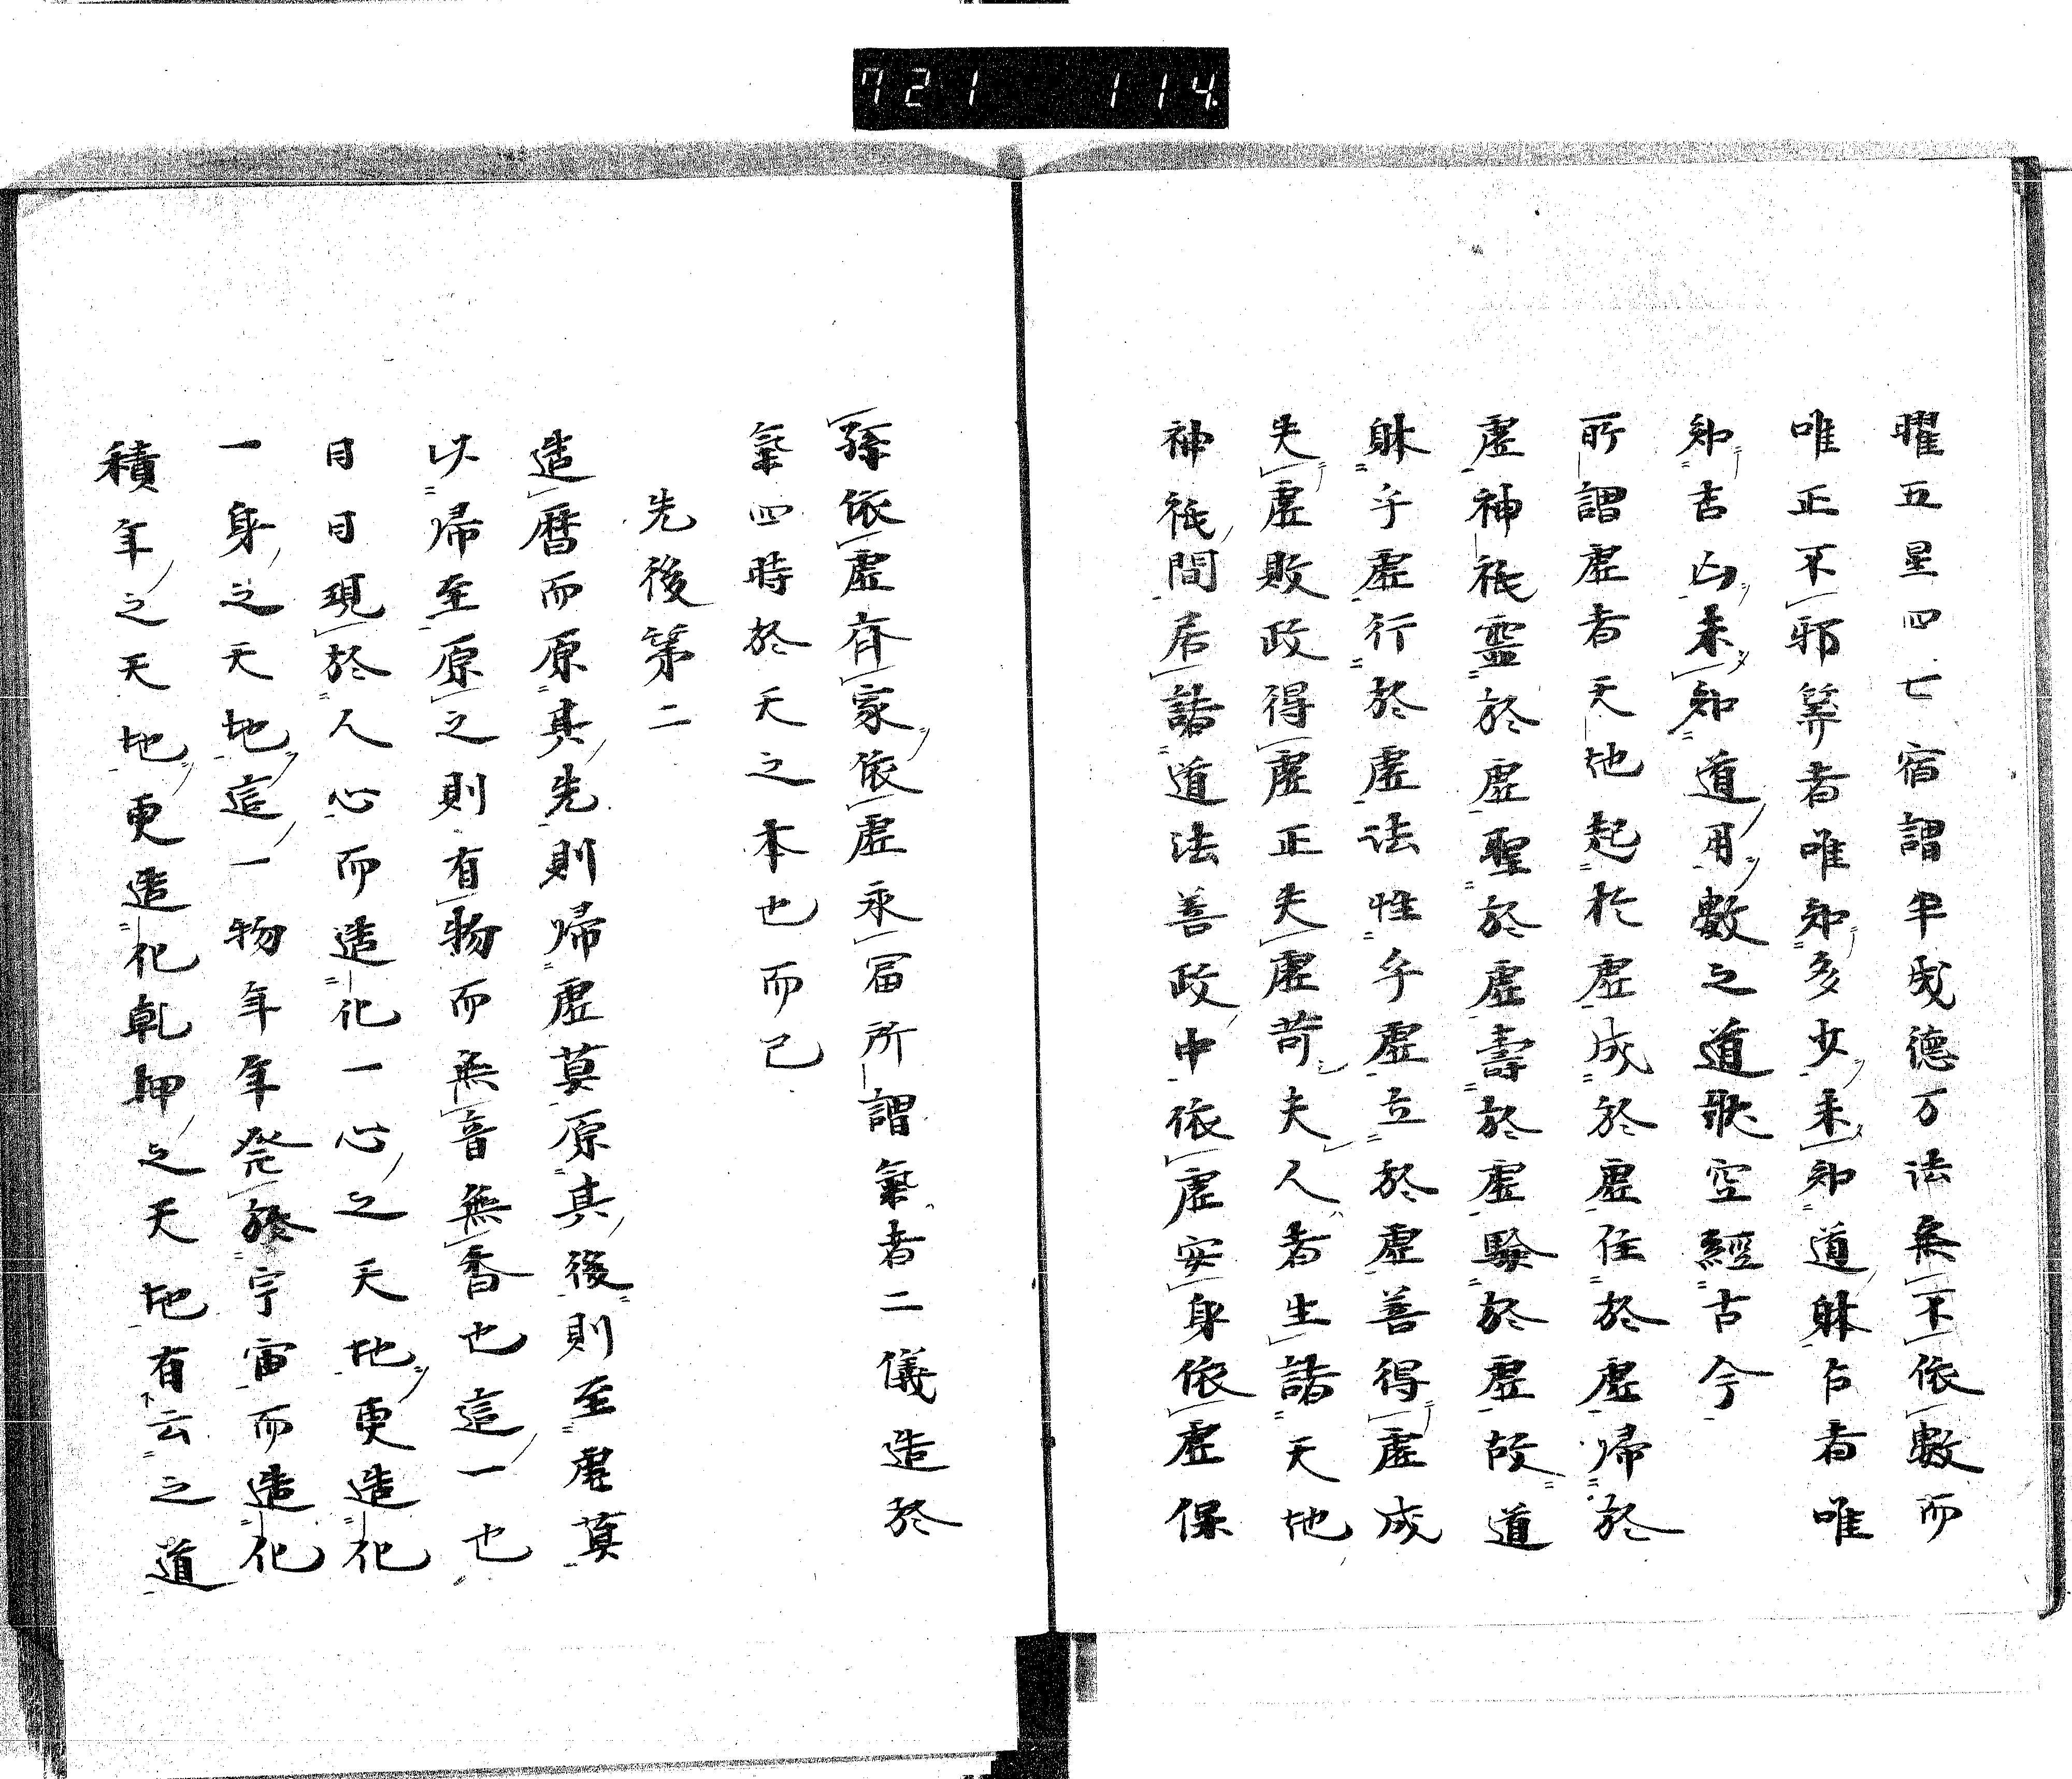 721 114
曜五星四七宿謂年成德万法無不依數而
唯正不邪筭者唯知多少未知道躰占者唯
知吉凶未知道用數之道哉空經古今
所謂虛者天地起於虛成於虛住於虛歸於
虛神祇靈於虛聖於虛壽於虛驗於虛故道
躰乎虛行於虛法性乎虛立於虛善得虛成
失虛敗政得虛正失虛苛夫人者生諸天地
神祇間居諸道法善政中依虛安身依虛保
孫依虛齊家依虛永冨所謂氣者二儀造於
氣四時於天之本也而己
先後第二
造曆而原其先則歸虛莫原其後則至虛莫
以歸至原之則有物而無音無香也這一也
日日現於人心而造化一心之天地更造化
一身之天地這一物年年発於宇宙而造化
積年之天地更造化乾坤之天地有云之道